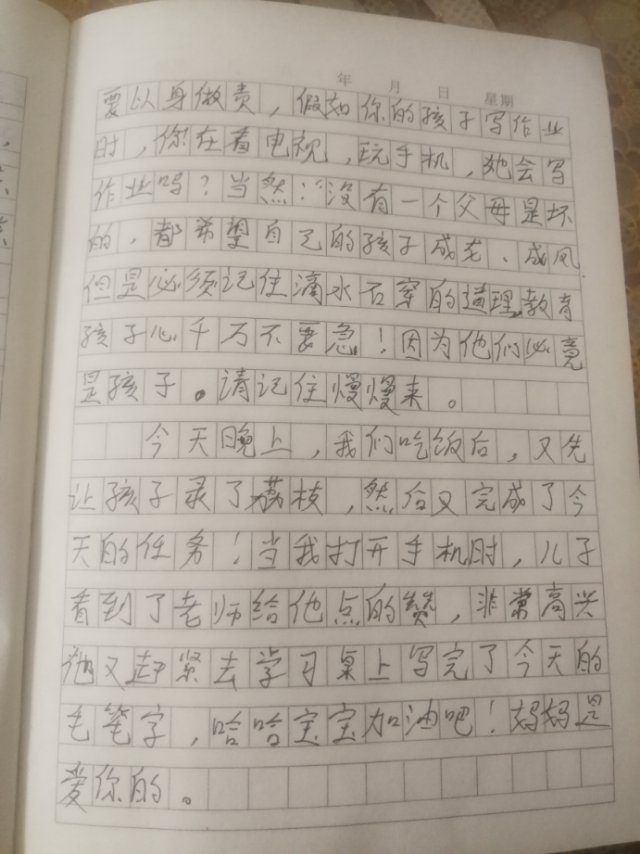 年 月 日 星期
要以身做责，假如你的孩子写作业
时，你在看电视，玩手机，她会写
作业吗？当然！没有一个父母是坏
的，都希望自己的孩子成龙、成凤
但是必须记住滴水石穿的道理教育
孩子心千万不要急！因为他们必竟
是孩子。请记住慢慢来。
今天晚上，我们吃饭后，又先
让孩子录了荔枝，然后又完成了今
天的任务！当我打开手机时，儿子
看到了老师给他点的赞，非常高兴
他又赶紧去学习桌上写完了今天的
毛笔字，哈哈宝宝加油吧！妈妈是
爱你的。